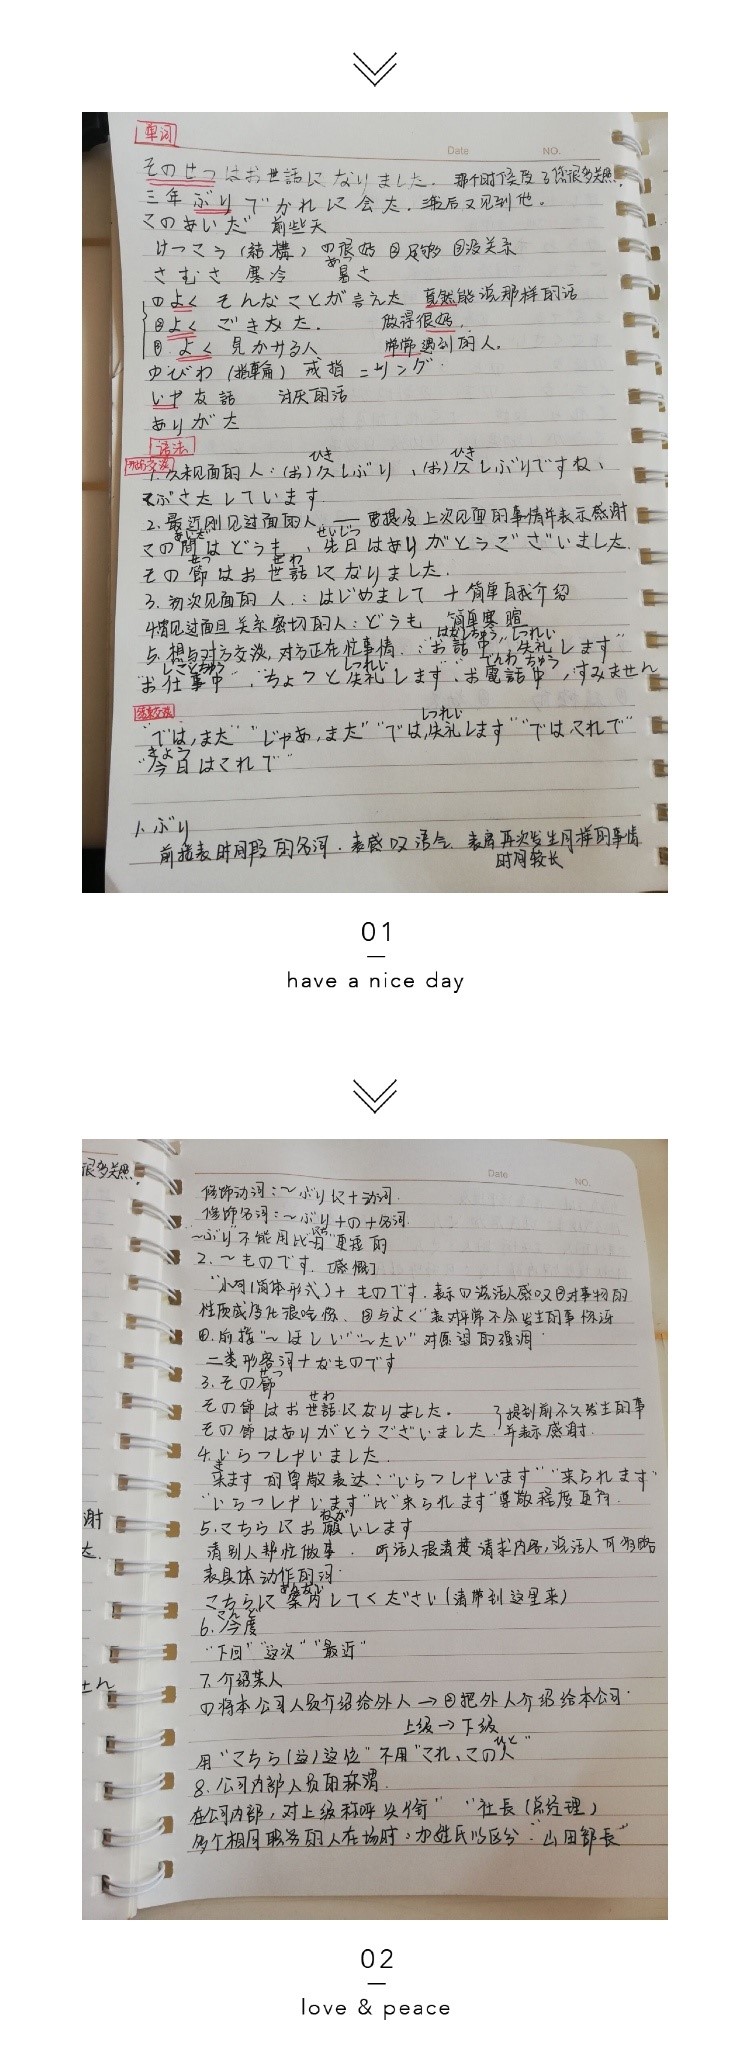 单词
Date NO.
そのせつはお世話になりました。那个时候受了您很多关照。
三年ぶりでかれに会た。三年后又见到他。
このあいだ 前些天
けっこう(結構) ①很好 ②足够 ③没关系
さむさ 寒冷 暑さ
あつ
①よく そんなことが言えた 竟然能说那样的话
②よく ごきた。 做得很好。
③よく 見かける人 常常遇到的人。
ゆびわ(指輪) 戒指 =リング
いやな話 讨厌的话
ありがた
语法
开始交谈
ひき ひき
1.久未见面的人:(お)久しぶり、(お)久しぶりですね、
ごぶさたしています
2.最近刚见过面的人 —— 要提及上次见面的事情并表示感谢
あいだ せいじつ
この間はどうも、先日はありがとうございました。
せつ せわ
その節はお世話になりました.
3.初次见面的人:はじめまして +简单自我介绍
4.常见过面且关系密切的人:どうも 简单寒暄
はなしちゅう しつれい
5.想与对方交谈,对方正在忙事情:"お話中,失礼します"
しごとちゅう しつれい でんわちゅう
"お仕事中","ちょっと失礼します","お電話中,すみません
结束交谈
しつれい
"では,また""じゃあ,また""では,失礼します""では これで"
きょう
"今日はこれで"
1.ぶり
前接表时间段的名词.表感叹语气 表离再次发生同样的事情
时间较长
01
have a nice day
很多关照。
Date NO.
修饰动词:~ぶりに+动词.
修饰名词:~ぶり+の+名词.
"~ぶり"不能用比"日"更短的
2.~ものです.[感慨]
"小句(简体形式)+ものです.表示①说话人感叹②对事物的
性质或变化很吃惊、③与よく"表对平常不会发生的事惊讶
④.前接"~ほしい""~たい"对愿望的强调
二类形容词+なものです
せつ
3.その節
せわ
その節はお世話になりました。 提到前不久发生的事
その節はありがとうございました 并表示感谢.
4.いらっしゃいました.
き
来ます的尊敬表达:"いらっしゃいます""来られます"
"いらっしゃいます"比"来られます"尊敬程度更高.
ねが
5.こちらにお願いします
请别人帮忙做事. 听话人很清楚请求内容,说话人可省略
表具体动作的词.
あんない
こちらに案内してください(请带到这里来)
こんど
6.今度
"下回""这次""最近"
7.介绍某人
①将本公司人员介绍给外人→②把外人介绍给本公司.
上级→下级
ひと
用"こちら(这)这位"不用"これ、この人"
8.公司内部人员的称谓.
在公司内部,对上级称呼头衔" "社長(总经理)
多个相同职务的人在场时:加姓氏以区分:"山田部長"
谢
た.
せん
02
love & peace